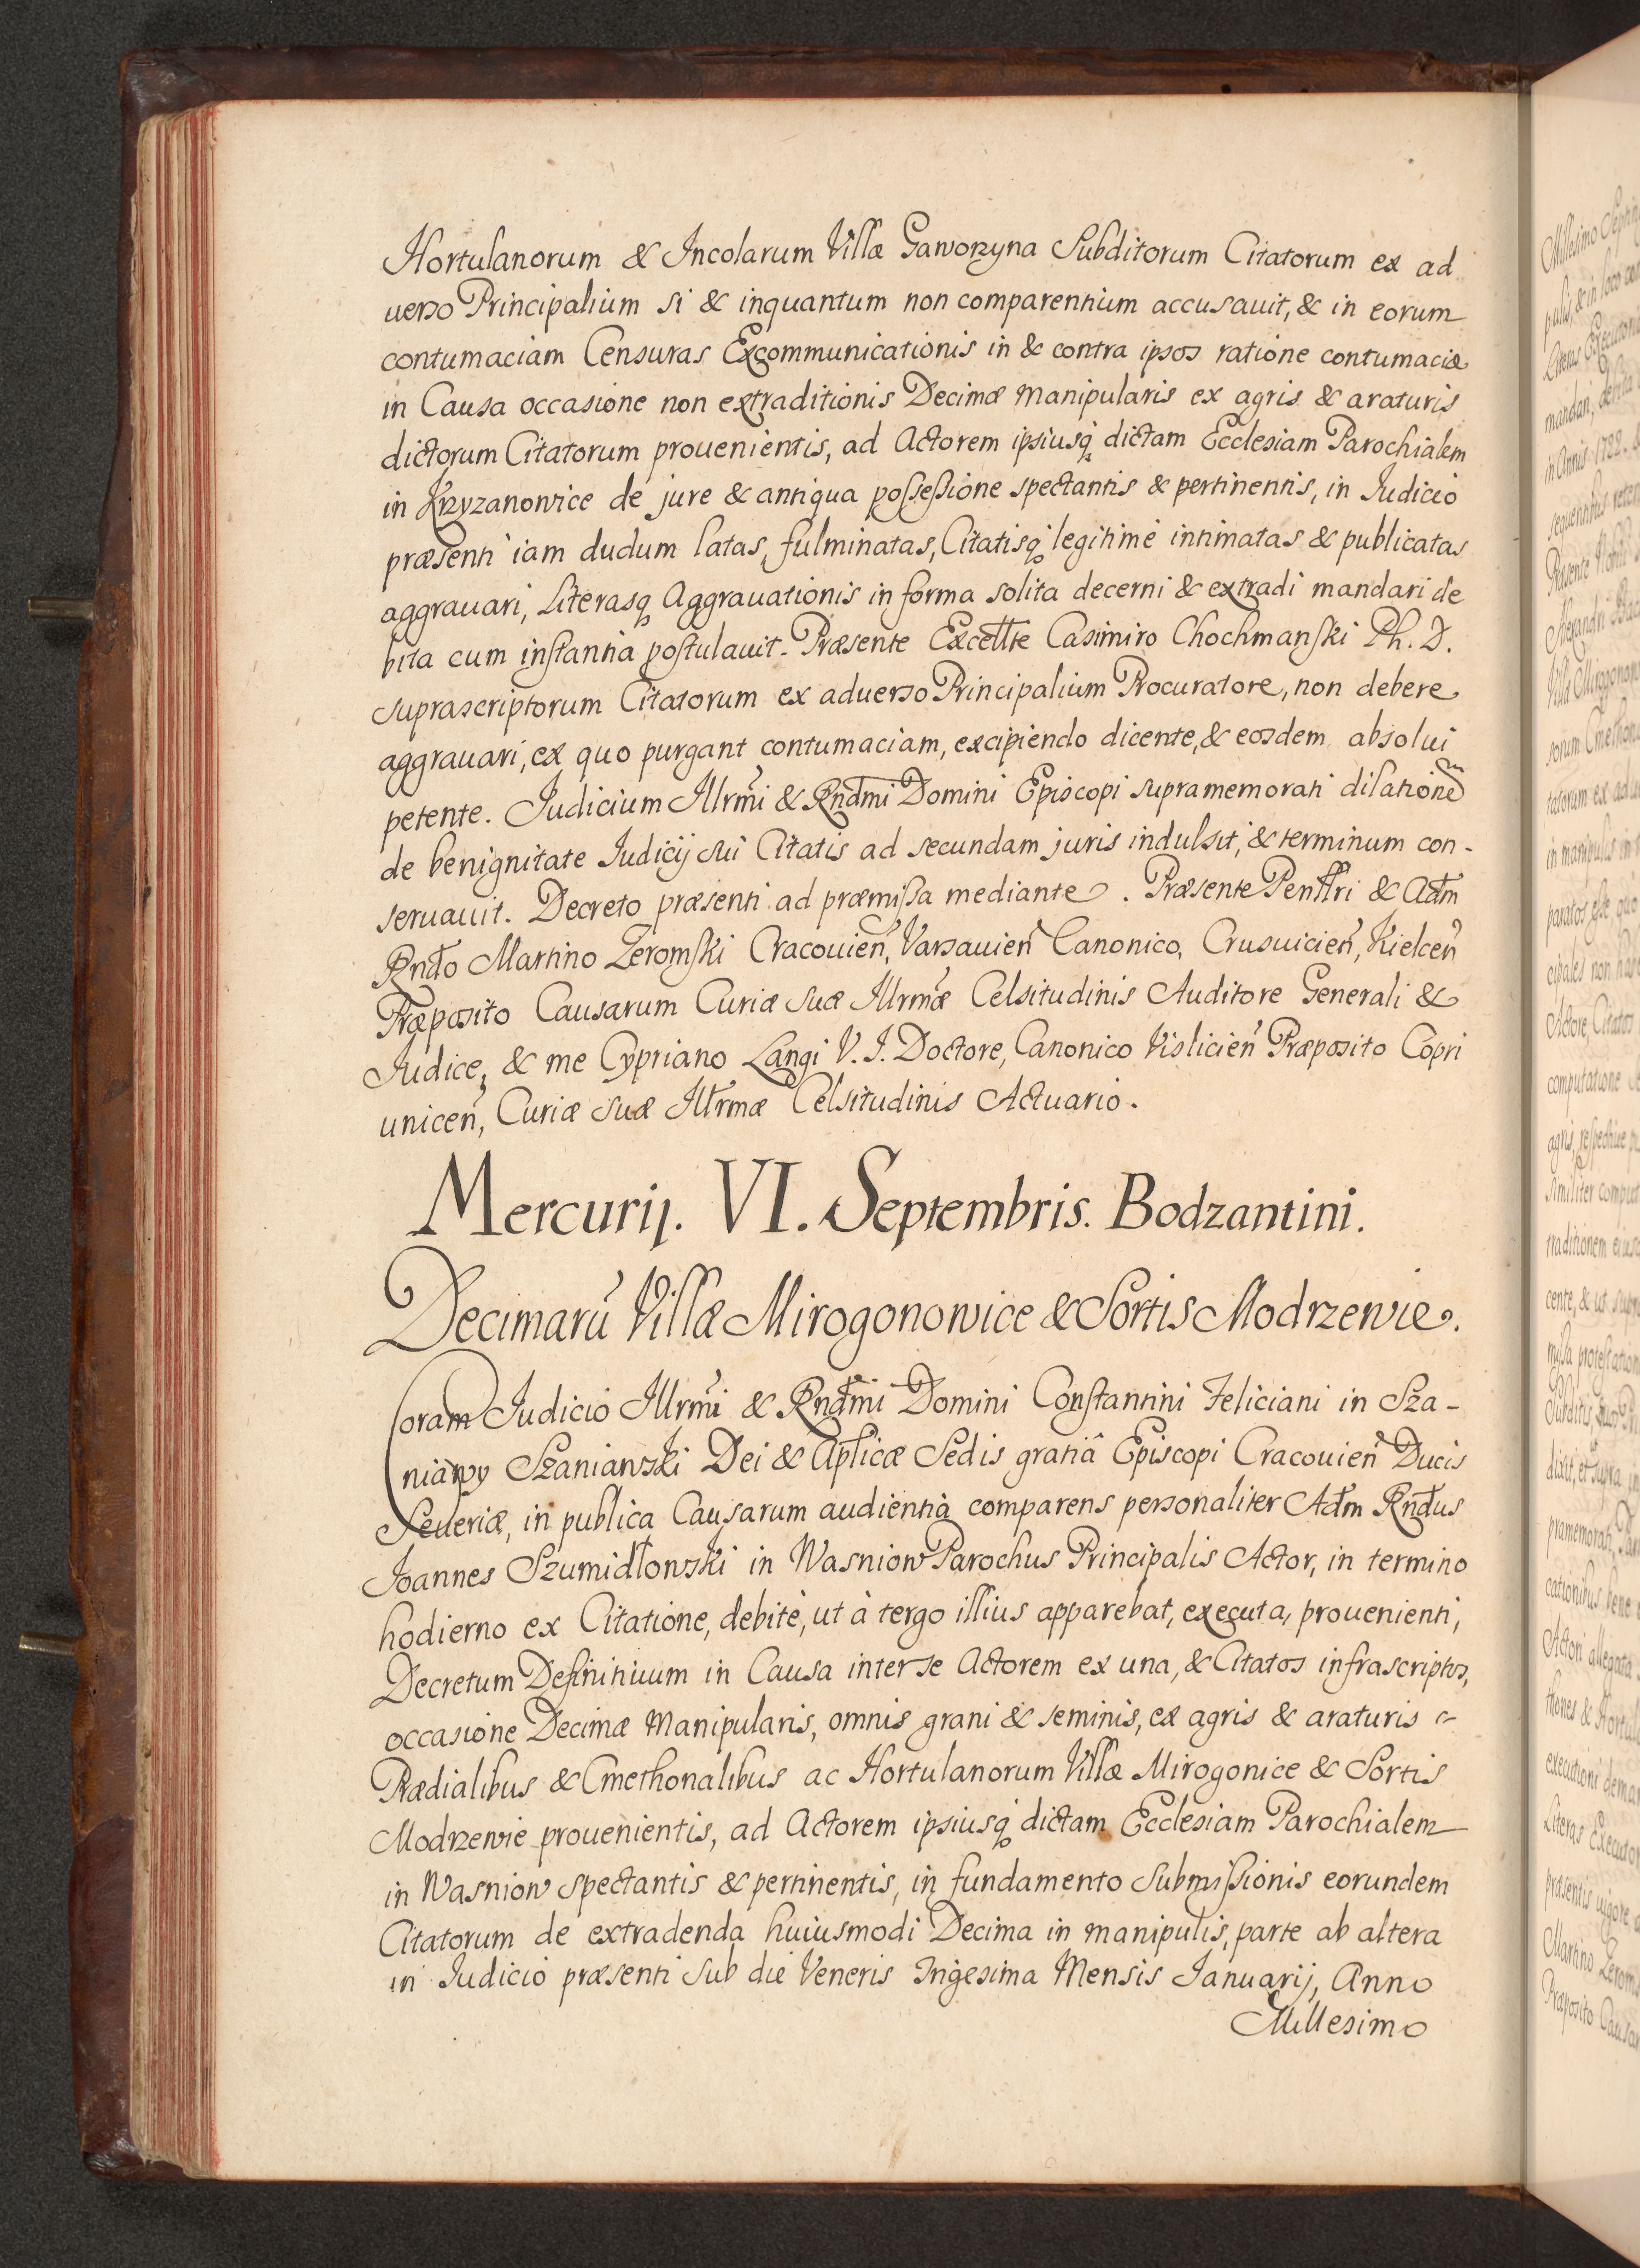 Hortulanorum & Incolarum Villæ Gaworzyna Subditorum Citatorum ex ad
uerso Principalium si & inquantum non comparentium accusauit, & in eorum
contumaciam Censuras Excommunicationis in & contra ipsos ratione contumaciæ
in Causa occasione non extraditionis Decimæ Manipularis ex agris & araturis
dictorum Citatorum prouenientis, ad Actorem ipsiusq dictam Ecclesiam Parochialem
in Krzyzanowice de jure & antiqua possessione spectantis & pertinentis, in Iudicio
præsenti iam dudum latas, fulminatas, Citatisq legitimè intimatas & publicatas
aggrauari, Literasq Aggrauationis in forma solita decerni & extradi mandari de
bita cum instantia postulauit. Præsente Excellte Casimiro Chochmanski Ph. D.
suprascriptorum Citatorum ex aduerso Principalium Procuratore, non debere
aggrauari, ex quo purgant contumaciam, excipiendo dicente, & eosdem absolui
petente. Judicium Illrmi & Rndmi Domini Episcopi supramemorati dilatione
de benignitate Iudicij sui Citatis ad secundam juris indulsit, & terminum con-
seruauit. Decreto præsenti ad præmissa mediante. Præsente Penllri & Adm
Rndo Martino Zeromski Cracouien, Varsauien Canonico, Crusuicien, Kielcen
Præposito Causarum Curiæ suæ Illrmæ Celsitudinis Auditore Generali &
Iudice, & me Cypriano Langi V. I. Doctore, Canonico Vislicien Præposito Copri
unicen, Curiæ suæ Illrmæ Celsitudinis Actuario.
Mercurij. VI. Septembris. Bodzantini.
Decimarū Villæ Mirogonowice & Sortis Modrzewie.
Coram Judicio Illrmi & Rndmi Domini Constantini Feliciani in Sza-
niawy Szaniawski Dei & Aplicæ Sedis gratiâ Episcopi Cracouien Ducis
Seueriæ, in publica Causarum audientia comparens personaliter Adm Rndus
Joannes Szumidłowski in Wasniow Parochus Principalis Actor, in termino
hodierno ex Citatione, debitè, ut à tergo illius apparebat, executa, prouenienti,
Decretum Definitiuum in Causa inter se Actorem ex una, & Citatos infrascriptos,
occasione Decimæ Manipularis, omnis grani & seminis, ex agris & araturis
Prædialibus & Cmethonalibus ac Hortulanorum Villæ Mirogonice & Sortis
Modrzewie prouenientis, ad Actorem ipsiusq dictam Ecclesiam Parochialem
in Wasniow spectantis & pertinentis, in fundamento Submissionis eorundem
Citatorum de extradenda huiusmodi Decima in manipulis, parte ab altera
in Iudicio præsenti sub die Veneris Trigesima Mensis Ianuarij, Anno
Millesimo